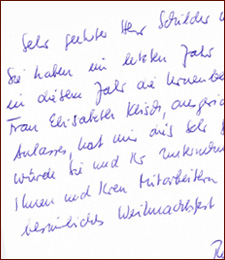 Sehr geehrter Herr Schilder
Sie haben im letzten Jahr
in diesem Jahr die
Frau Elisabeth
Anlasses, hat mir dies sehr
würde Sie und Ihr Unternehm
Ihnen und Ihren Mitarbeitern
besinnliches Weihnachtsfest